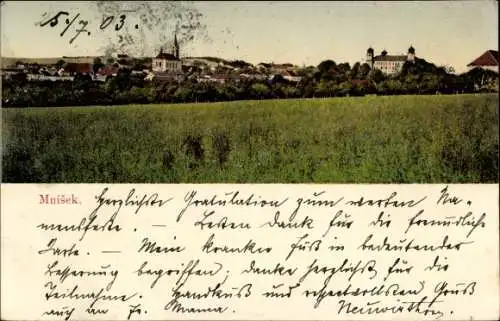 15./7. 03.
Mníšek.
Herzlichste Gratulation zum werten Na-
mensfeste. — Besten Dank für die freundliche
Karte. — Mein kranker Fuß in bedeutender
Besserung begriffen; danke herzlichst für die
Teilnahme. Handkuß und respectvollsten Gruß
auch an Fr. Mama. Neuwirth